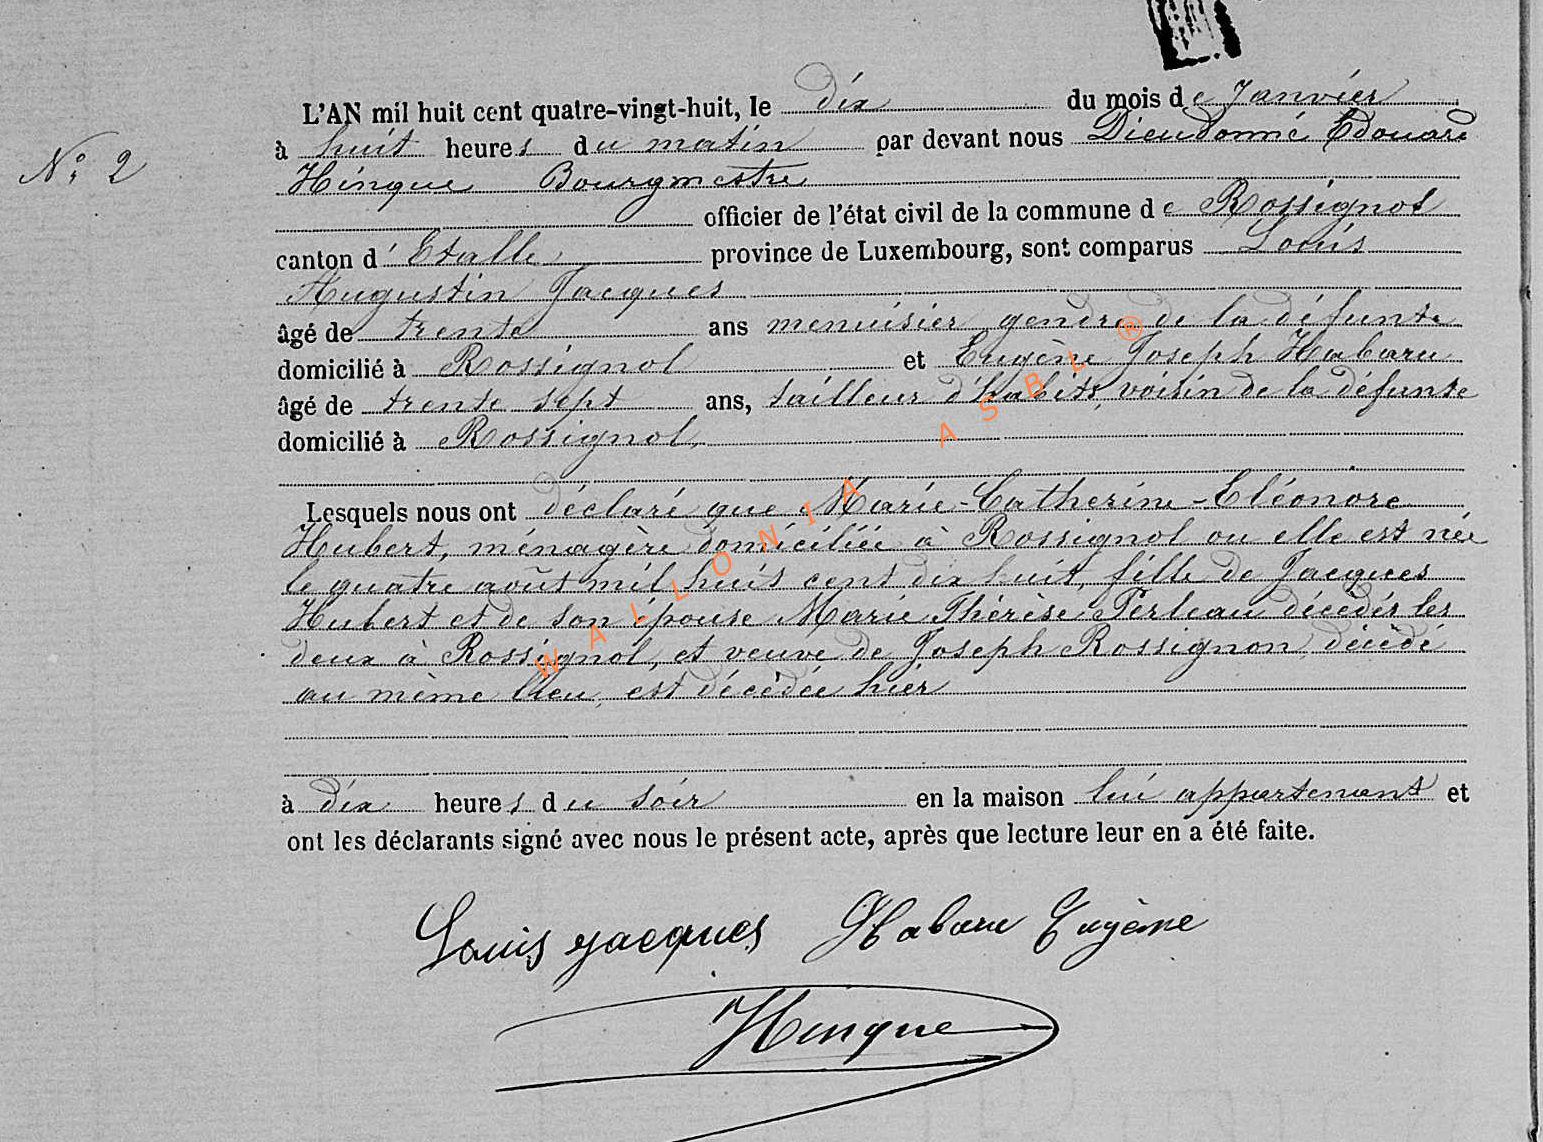 L'AN mil huit cent quatre-vingt-huit, le dix du mois de Janvier
N° 2
à huit heures du matin par devant nous Dieudonné Edouard
Hinque Bourgmestre
officier de l'état civil de la commune de Rossignol
canton d'Etalle province de Luxembourg, sont comparus Louis
Augustin Jacques
âgé de trente ans menuisier gendre de la défunte
domicilié à Rossignol et Eugène Joseph Habaru
âgé de trente sept ans, tailleur d'habits, voisin de la défunte
domicilié à Rossignol,
Lesquels nous ont déclaré que Marie-Catherine-Eléonore
Hubert, ménagère domiciliée à Rossignol ou elle est née
le quatre août mil huit cent dix huit, fille de Jacques
Hubert et de son épouse Marie Thérèse Perleau décédés les
deux à Rossignol, et veuve de Joseph Rossignon décédé
au même lieu, est décédée hier
à dix heures du soir en la maison lui appartenant et
ont les déclarants signé avec nous le présent acte, après que lecture leur en a été faite.
Louis Jacques Habaru Eugène
Hinque
WALLONIA ASBL ®